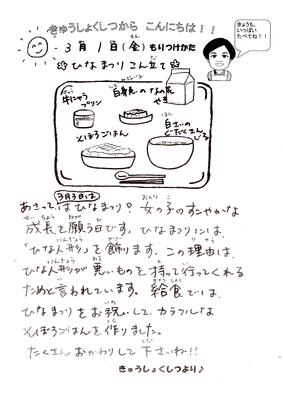 きゅうしょくしつから こんにちは!!
きょうも、
いっぱい
たべてね!!
3月1日(金)もりつけかた
✿ひなまつりこん立て✿
牛にゅう
プリン
自身魚の なの花
やき
そぼろごはん
白さいの
ぐだくさん
しる
3月3日は
あさっては ひなまつり♪ 女の子のすこやかな
成長を願う日です。ひなまつりには、
ひな人形」を飾ります。この理由は、
ひな人形が悪いものを持って行ってくれる
ためと言われています。給食では、
ひなまつりをお祝いして、カラフルな
そぼろごはんを作りました。
たくさん おかわりして 下さいね!!
きゅうしょくしつより♪